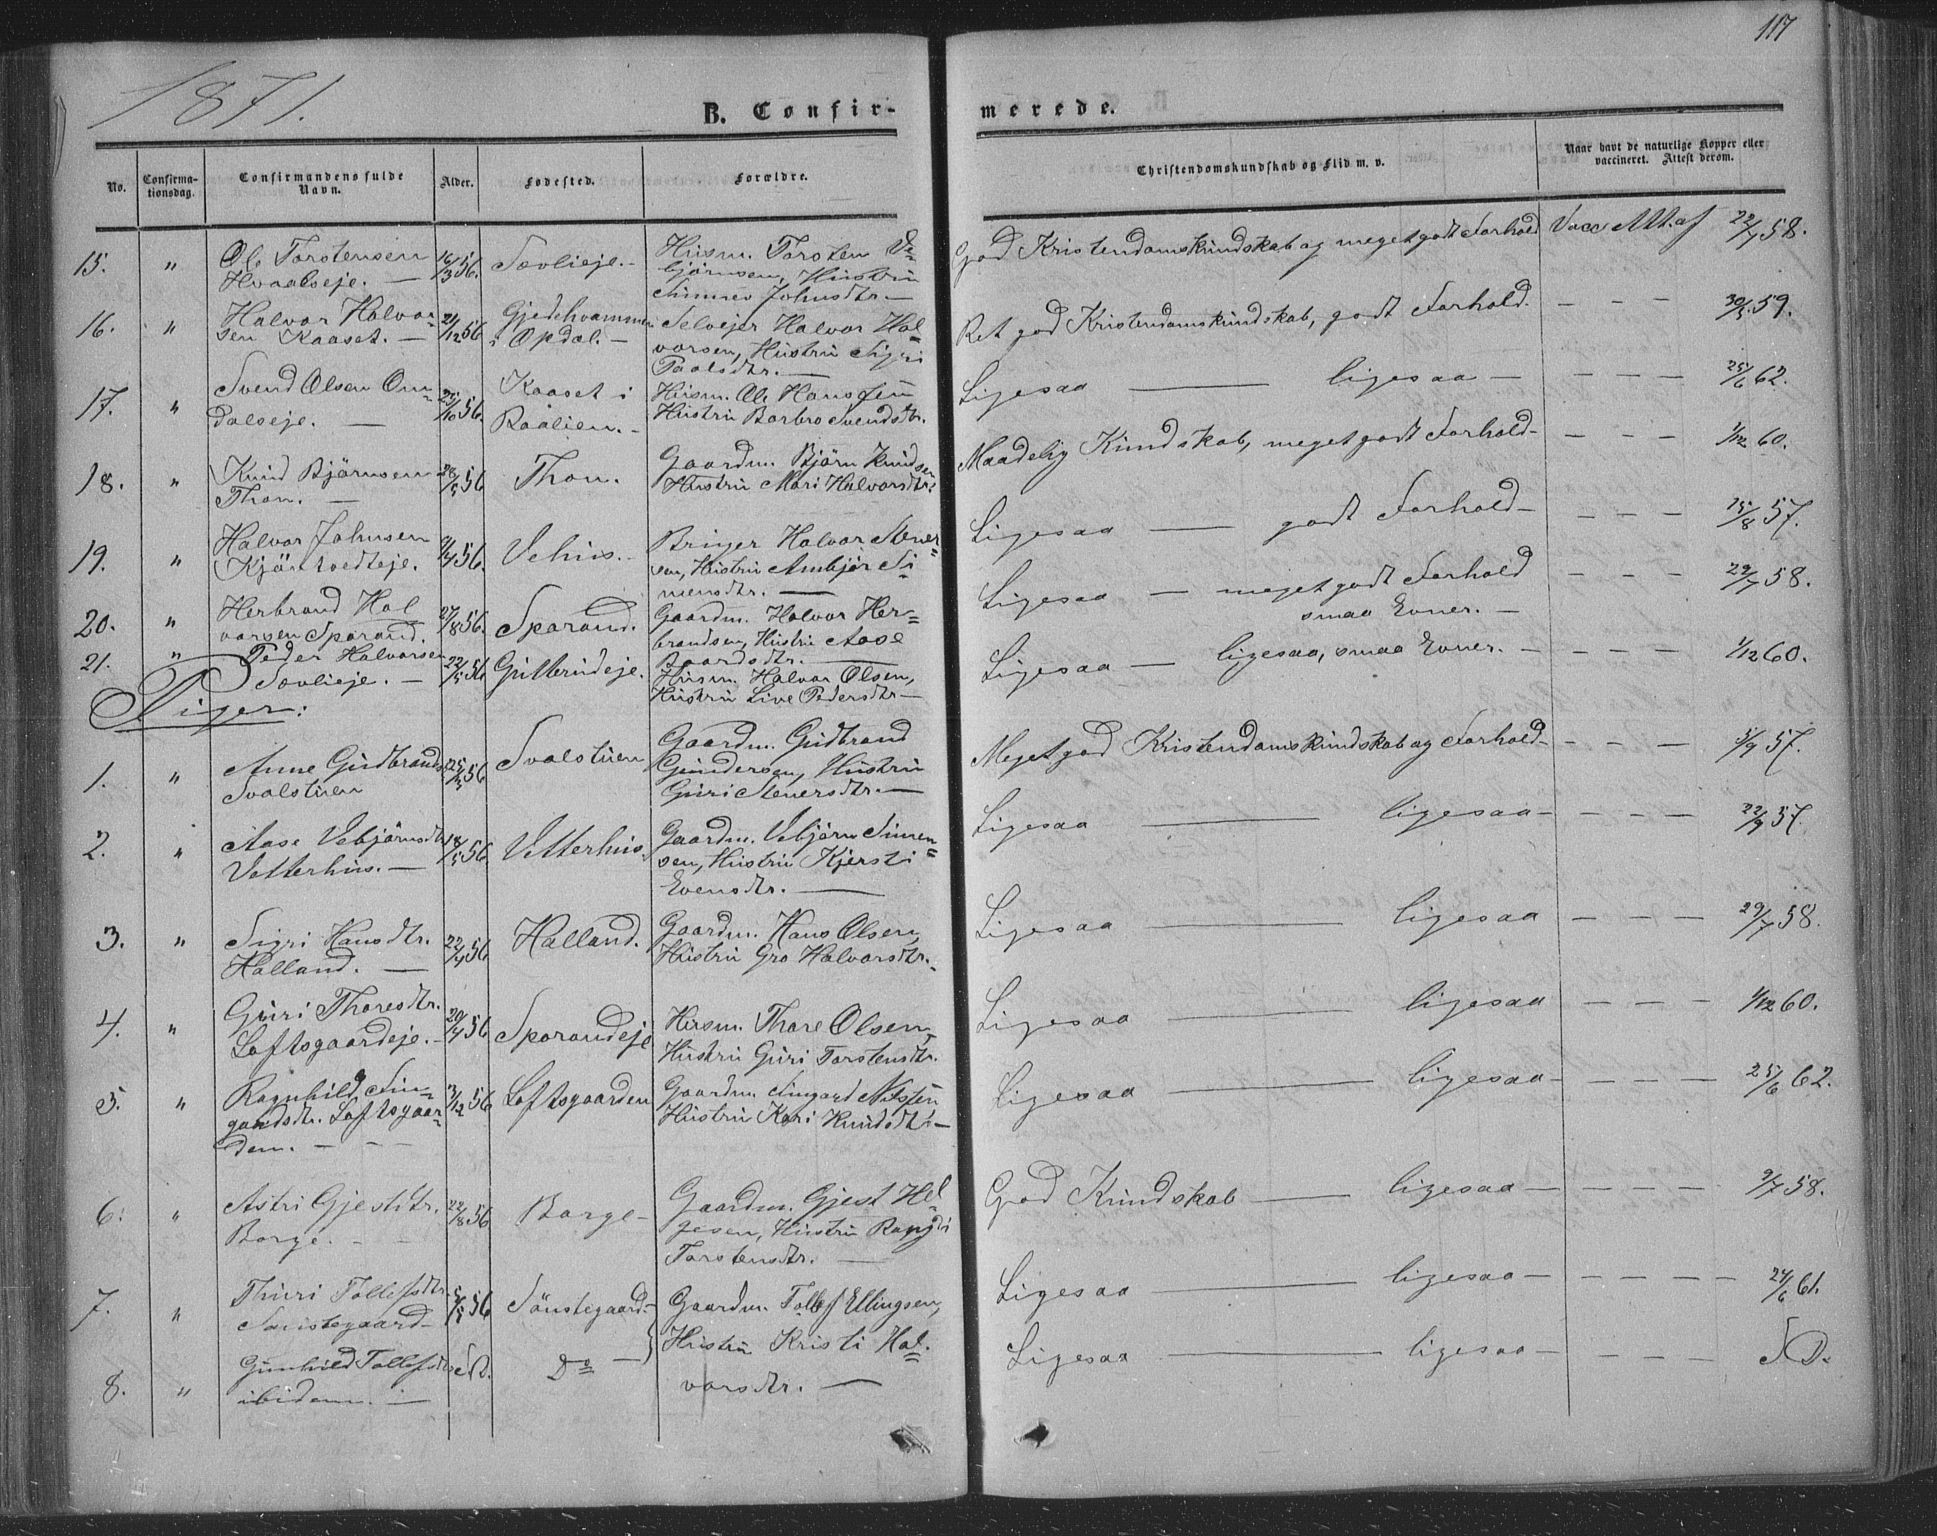 117
1871.
B. Confir-
merede.
No.
Confirma-
tionsdag.
Confirmandens fulde
Navn.
Alder.
Fødested.
Forældre.
Christendomskundskab og Flid m. v.
Naar havt de naturlige Kopper eller
vaccineret. Attest derom.
15. " Ole Torstensen
Hvaalseje. —
16/3 56. Sævlieje. —
Husm. Torsten Ve-
bjørnsen, Hustru
Sunnev Johnsdtr. —
God Kristendomskundskab og meget godt Forhold Vacc Att. af 22/7 58.
16. " Halvor Halvor=
sen Kaaset. —
21/12 56 Gjedehvammen
i Opdal. —
Selvejer Halvor Hal
vorsen, Hustru Sigri
Paalsdtr. —
Ret god Kristendomskundskab, godt Forhold. — — — 30/5 59.
17. " Svend Olsen Om=
dalseje. —
25/10 56. Kaaset i
Raalien. —
Husm. Ole Hanssen
Hustru Barbro Svendsdtr.
Ligesaa — ligesaa — — — — 25/6 62.
18. " Knud Bjørnsen
Thon. —
28/5 56 Thon.
Gaardm. Bjørn Knudsen
Hustru Mari Halvorsdtr.
Maadelig Kundskab, meget godt Forhold — — — — 1/12 60.
19. " Halvor Johnsen
Kjøntvedteje.
9/4 56. Vehus. —
Bruger Halvor Stener=
sen, Hustru Ambjør Si=
mensdtr. —
Ligesaa — godt Forhold — — — — 25/8 57.
20. " Herbrand Hal
vorsen Sporand.
27/8 56. Sporand.
Gaardm. Halvor Her=
brandsen, Hustru Aase
Baardsdtr. —
Ligesaa — meget godt Forhold
smaa Evner. — — — — 29/7 58.
21. " Peder Halvorsen
Sævlieje. —
22/5 56 Gutterudeje.
Husm. Halvor Olsen,
Hustru Live Pedersdtr —
Ligesaa — ligesaa, smaa Evner. — — — — 1/12 60.
Piger:
1. " Anne Gudbrands
Svalstuen
25/5 56 Svalstuen
Gaardm. Gudbrand
Gundersen, Hustru
Guri Stenersdtr. —
Meget god Kristendomskundskab og Forhold — — — — 5/9 57.
2. " Aase Vebjørnsdtr
Vetterhus. —
18/5 56 Vetterhus.
Gaardm. Vebjørn Simen=
sen, Hustru Kjersti
Evensdtr. —
Ligesaa — ligesaa — — — — 22/9 57.
3. " Sigri Hansdtr.
Halland. —
22/4 56 Halland.
Gaardm. Hans Olsen,
Hustru Gro Halvorsdtr.
Ligesaa — ligesaa — — — 29/7 58.
4. " Guri Thoresdtr.
Loftsgaardeje. —
20/4 56 Sporandeje
Husm. Thore Olsen
Hustru Guri Torstensdtr.
Ligesaa — ligesaa — — — 1/12 60.
5. " Ragnhild Sin=
gardsdtr. Loftsgaar=
den. — — —
3/12 56 Loftsgaarden
Gaardm. Singard Nilssen
Hustru Kari Knudsdtr —
Ligesaa — ligesaa — — — — 25/6 62.
6. " Astri Gjestdtr.
Borge. — —
22/8 56 Borge —
Gaardm. Gjest Hel
gesen, Hustru Rangdi
Torstensdtr. —
God Kundskab — ligesaa — — — — 9/7 58.
7. " Thuri Tollefsdtr.
Sønstegaard —
5/5 56 Sønstegaard —
Gaardm. Tollef Ellingsen,
Hustru Kristi Hal=
vorsdtr. —
Ligesaa — ligesaa — — — — 24/6 61.
8. " Gunhild Tollefsdtr
ibidem. —
s.D. Do —
Ligesaa — ligesaa — — — — s.D.